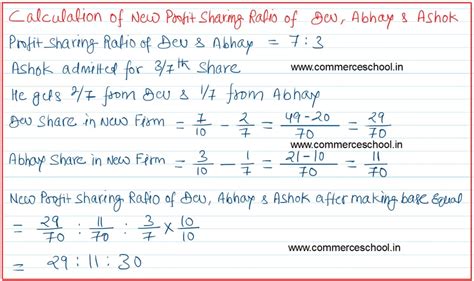 Calculation of New Profit Sharing Ratio of Dev, Abhay & Ashok
Profit Sharing Ratio of Dev & Abhay = 7:3
Ashok admitted for 3/7th Share
www.commerceschool.in
He gets 2/7 from Dev & 1/7 from Abhay
Dev Share in New Firm = 7/10 - 2/7 = 49-20/70 = 29/70
Abhay Share in New Firm = 3/10 - 1/7 = 21-10/70 = 11/70
New Profit Sharing Ratio of Dev, Abhay & Ashok after making base Equal
= 29/70 : 11/70 : 3/7 × 10/10
= 29:11:30
www.commerceschool.in